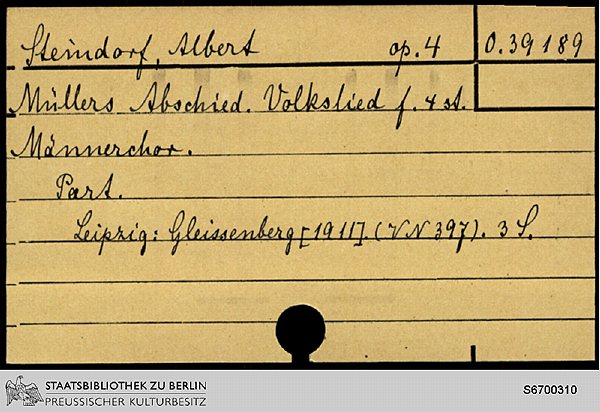 Steindorf, Albert op. 4 O. 39189
Müllers Abschied. Volkslied f. 4 st.
Männerchor.
Part.
Leipzig: Gleissenberg [1911] (VN 397). 3 S.
STAATSBIBLIOTHEK ZU BERLIN
PREUSSISCHER KULTURBESITZ
S6700310